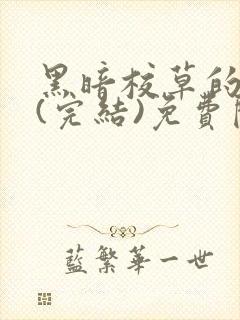 黑暗校草的
(完結)免費
藍繁華一世